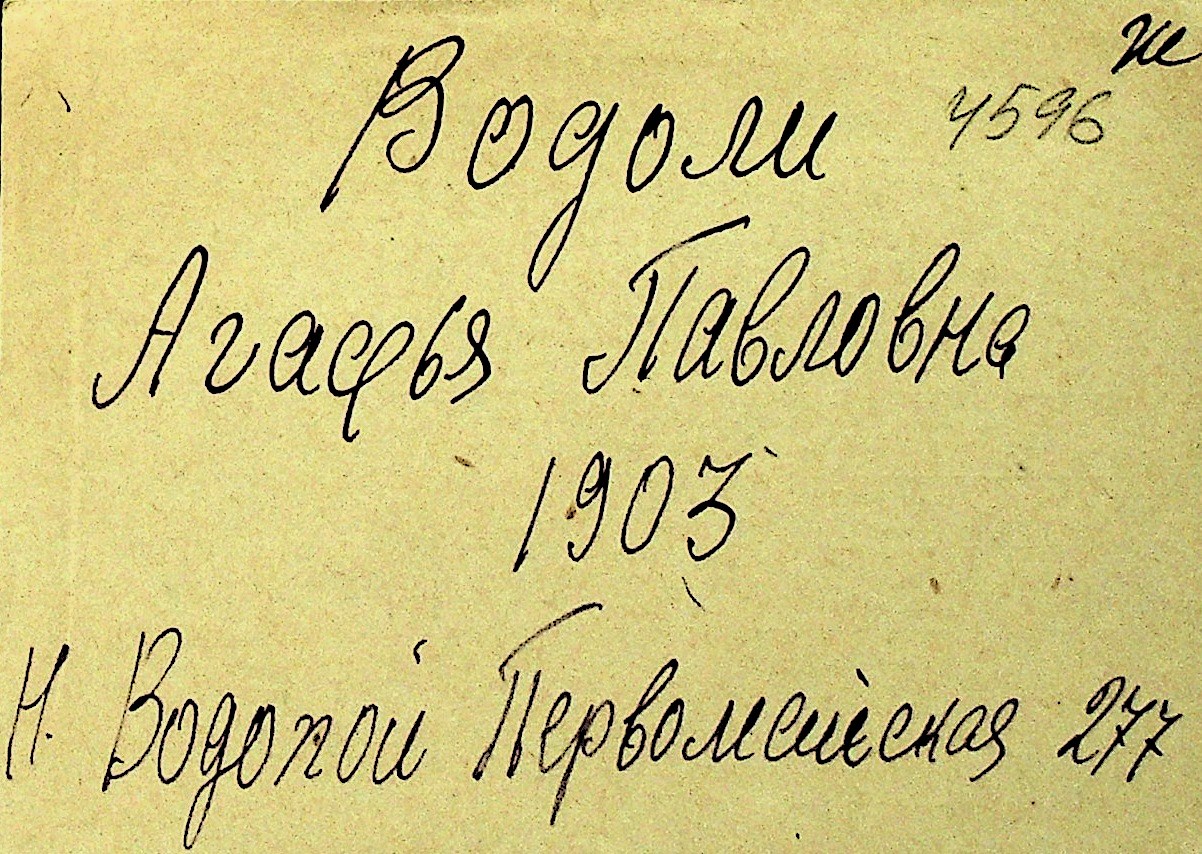 ж
Водоли 4596
Агафья Павловна
1903
Н. Водопой Первомайская 277